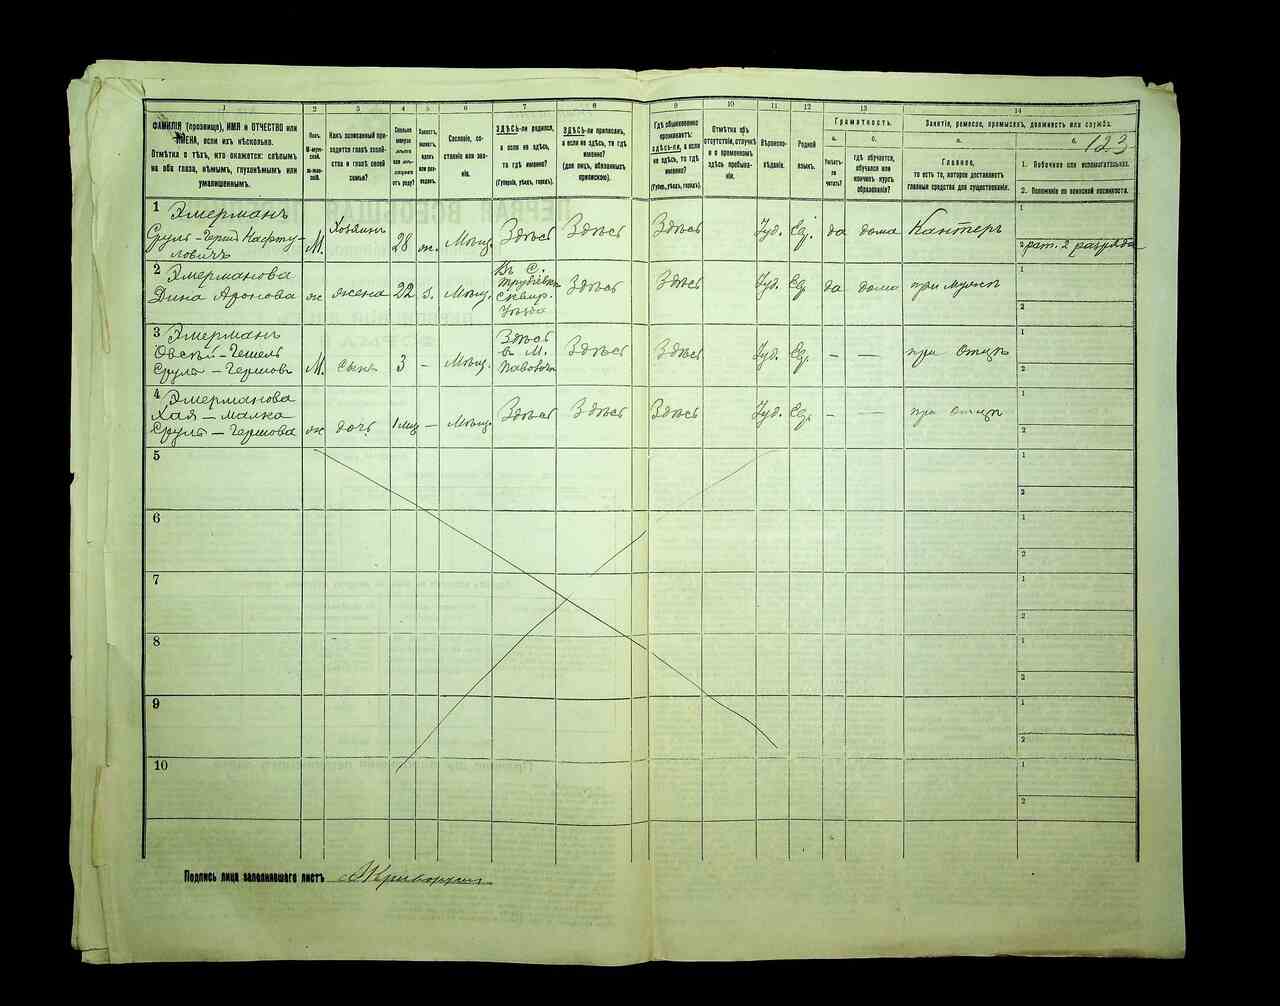 1 2 3 4 5 6 7 8 9 10 11 12 13 14
ФАМИЛІЯ (прозвище), ИМЯ и ОТЧЕСТВО или
ИМЕНА, если ихъ нѣсколько.
Отмѣтка о тѣхъ, кто окажется: слѣпымъ
на оба глаза, нѣмымъ, глухонѣмымъ или
умалишеннымъ.
Полъ.
М-муж-
ской.
Ж-жен-
скій.
Какъ записанный при-
ходится главѣ хозяй-
ства и главѣ своей
семьи?
Сословіе, со-
стояніе или зва-
ніе.
ЗДѢСЬ-ли родился,
а если не здѣсь,
то гдѣ именно?
(Губернія, уѣздъ, городъ).
ЗДѢСЬ-ли приписанъ,
а если не здѣсь, то гдѣ
именно?
(для лицъ, обязанныхъ
припискою).
Гдѣ обыкновенно
проживаетъ:
здѣсь-ли, а если
не здѣсь, то гдѣ
именно?
(Губерн., уѣздъ, городъ).
Отмѣтка объ
отсутствіи, отлучкѣ
и о временномъ
здѣсь пребыва-
ніи.
Вѣроиспо-
вѣданіе.
Родной
языкъ.
Грамотность.
а.
Умѣетъ-
ли
читать?
б.
гдѣ обучается,
обучался или
кончилъ курсъ
образованія?
Занятіе, ремесло, промыселъ, должность или служба.
а.
Главное,
то есть то, которое доставляетъ
главныя средства для существованія.
б.
123
1. Побочное или вспомогательное.
2. Положеніе по воинской повинности.
1 Эмерманъ
М. Хозяинъ 28 ж. Мѣщ. Здѣсь Здѣсь Здѣсь Іуд. Евр. да дома 1
2 рат. 2 разряда
2 Эмерманова
Дина Аронова ж жена 22 Мѣщ. Въ С.
Сквир.
Уѣзда Здѣсь Здѣсь Іуд. Евр. да дома при мужѣ 1
2
3 Эмерманъ
М. сынъ 3 – Мѣщ. Здѣсь
в М. Здѣсь Здѣсь Іуд. Евр. – – при отцѣ 1
2
4 Эмерманова
Хая – Малка
Сруль – Гершова ж дочь – Мѣщ. Здѣсь Здѣсь Здѣсь Іуд. Евр. – – при отцѣ 1
2
5 1
2
6 1
2
7 1
2
8 1
2
9 1
2
10 1
2
Подпись лица заполнявшаго листъ